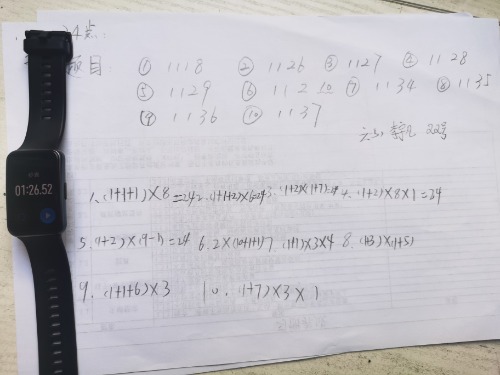 24点:
题目: ① 1118 ② 1126 ③ 1127 ④ 1128
⑤ 1129 ⑥ 112 10 ⑦ 1134 ⑧ 1135
⑨ 1136 ⑩ 1137
22号
01:26.52
1、(1+1+1)×8=24 2、(1+1+2)×6=24 3、(1+2)×(1+7)=24 4、(1+2)×8×1=24
5、(1+2)×(9-1)=24 6、2×(10+1+1) 7、(1+1)×3×4 8、(1+3)×(1+5)
9、(1+1+6)×3 10、(1+7)×3×1